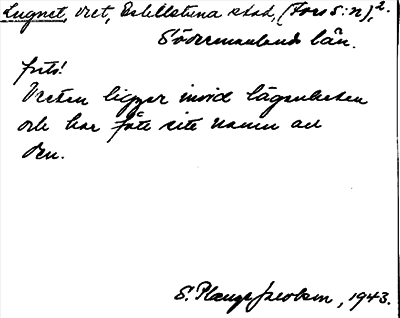 Lugnet, vret, Eskilstuna stad, (Fors S:n), 2.
Södermanlands län.
frts!
Vreten ligger invid lägenheten
och har fått sitt namn av
den.
S. Plænge Jacobson, 1943.